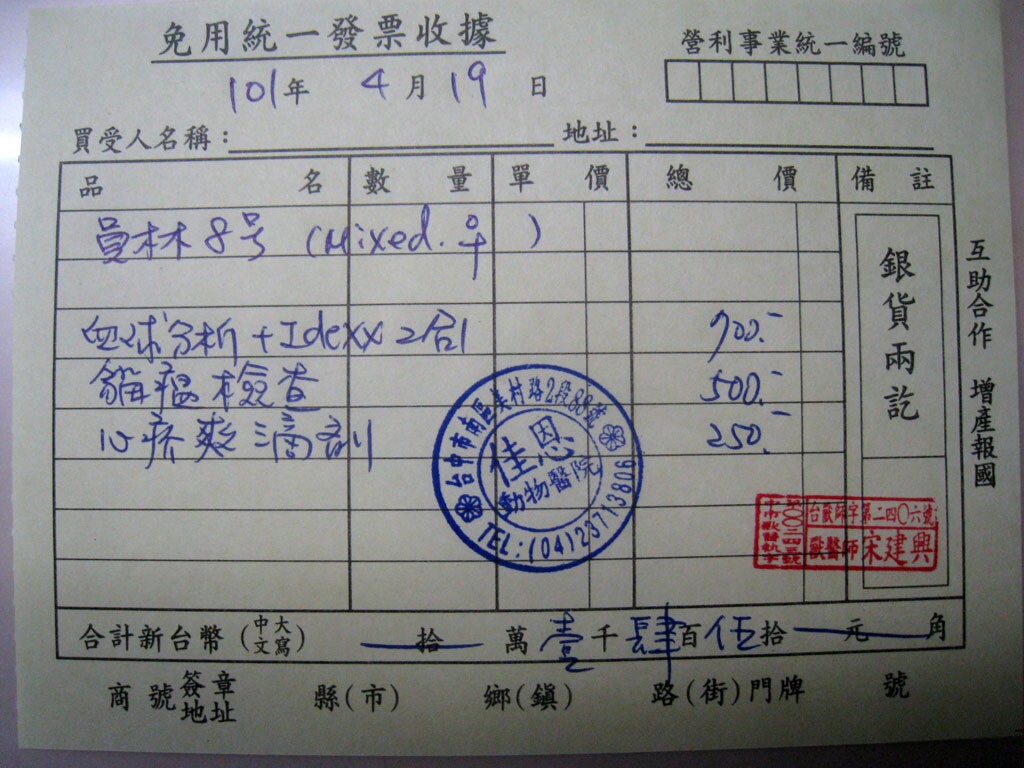 免用統一發票收據
營利事業統一編號
101年 4月19日
買受人名稱： 地址：
品名 數量 單價 總價 備註
員林8号 (Mixed. ♀)
血球分析+Idexx2合1 700.-
貓瘟檢查 500.-
心疥爽滴劑 250.-
銀貨兩訖
互助合作 增產報國
台中市南區美村路2段88號
佳恩
動物醫院
TEL:(04)23713806
台獸師字第二四〇六號
獸醫師宋建興
合計新台幣(中文大寫) 拾萬壹千肆百伍拾元角
商號簽章地址 縣(市) 鄉(鎮) 路(街)門牌 號